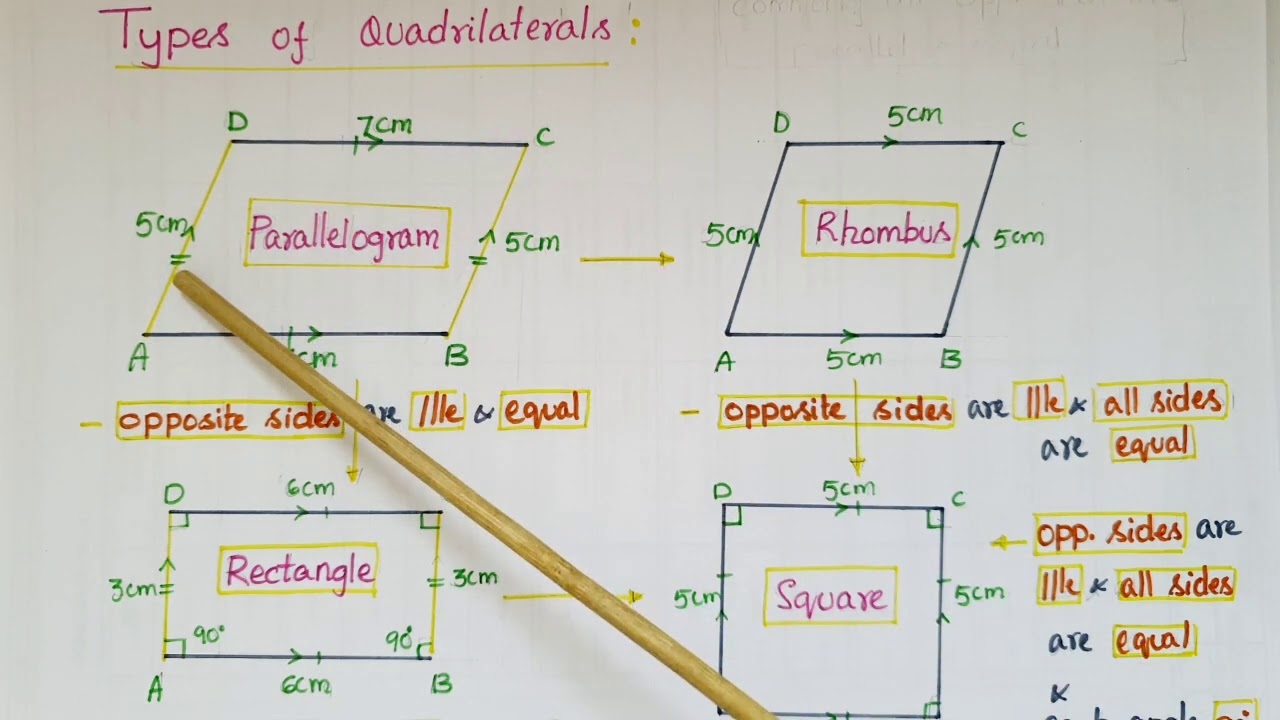 Types of Quadrilaterals:
D 7cm C
5cm Parallelogram 5cm
A cm B
- opposite sides are ||le & equal
D 5cm C
5cm Rhombus 5cm
A 5cm B
- opposite sides are ||le & all sides
are equal
D 6cm
3cm Rectangle 3cm
90° 90°
A 6cm B
D 5cm C
5cm Square 5cm
opp. sides are
||le & all sides
are equal
&